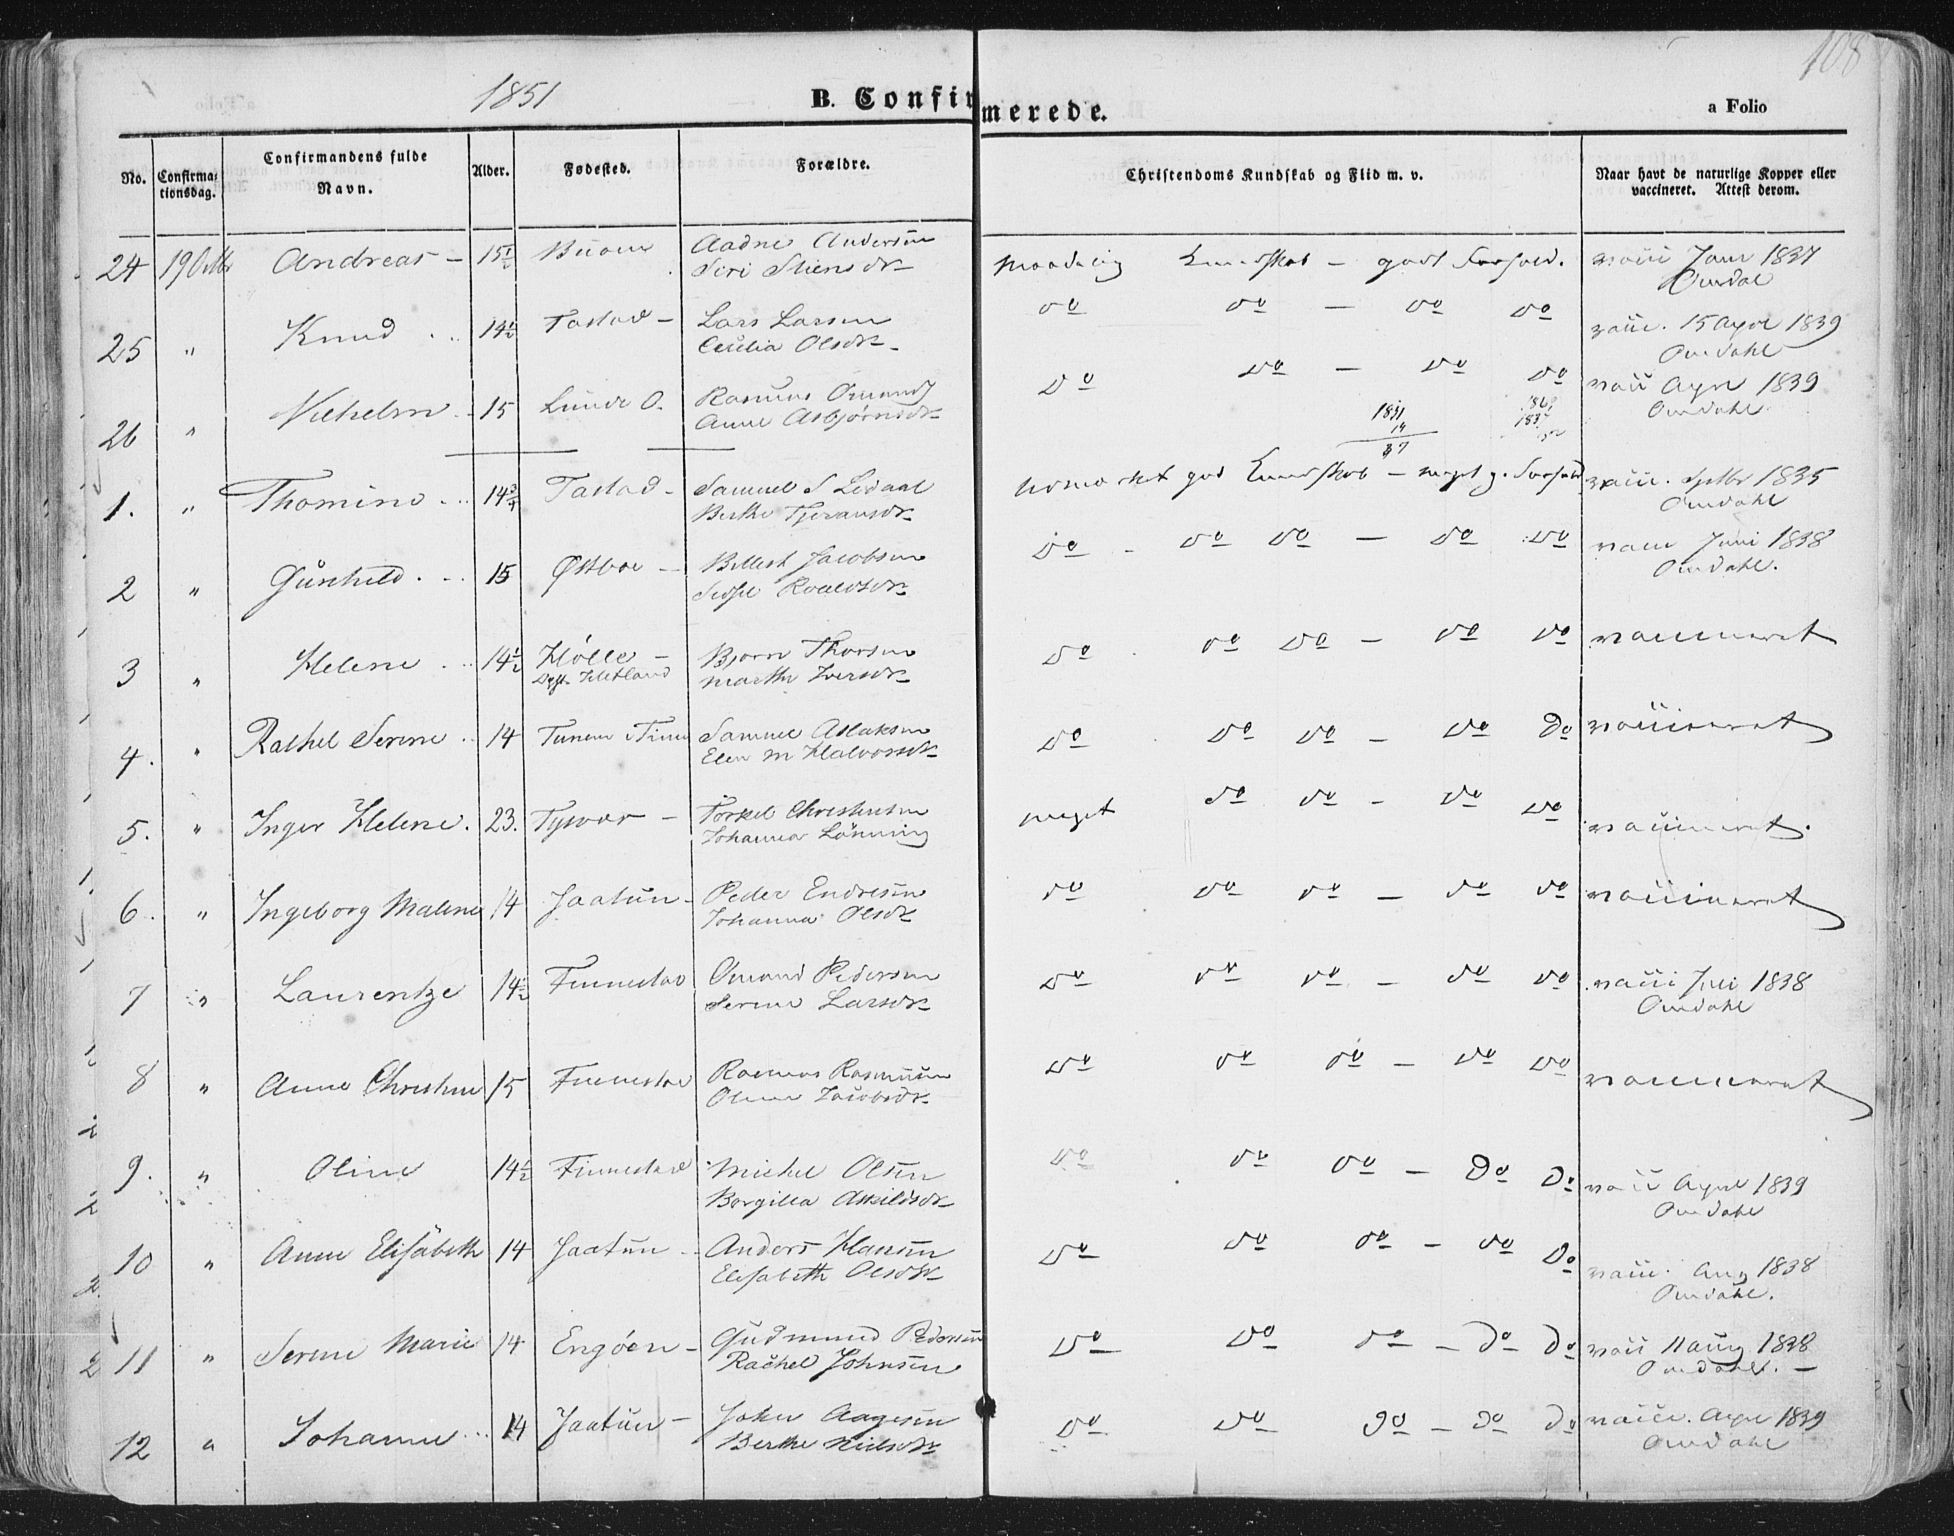 1851
108
B. Confirmerede.
a Folio
No.
Confirmationsdag.
Confirmandens fulde Navn.
Alder.
Fødested.
Forældre.
Christendoms Kundskab og Flid m. v.
Naar havt de naturlige Kopper eller vaccineret. Attest derom.
24 19 Octbr Andreas - 15½ Aadne Andersen Kundskab - godt Forhold. Juni 1837
Siri Omdal
25 " Knud 14½ Tastad - Lars Larsen do do - do do vacc. 15 April 1839
Cecilia Olsdr. Omdahl
26 " Vilhelm 15 Lunde O. Rasmus Omunds do do - do do vacc April 1839
Anne Asbjørnsdr Omdahl.
1851
14
37
1. " Thomine 14¾ Tastad - Samuel S Ledaal god Kundskab - meget g. Forhold vacc. Septbr 1835
Berthe Omdahl
2 " Gunhild 15 Østboe - Jacobsen do - do do - do do vacc Juni 1838
Roaldsdr Omdahl.
3 " Helene 14½ Hølle - Bjørn Thorsen do do do - do do vaccineret
Hetland Marthe Iversdr
4. " Rachel Serene 14 Tunem i Time Samuel Aslaksen do do do - do do vaccineret
Elen M Halvorsdr
5. " Inger Helene. 23. Tysvær - Torkel Christensen meget do do - do do vaccineret.
Johanna Lønning
6. " Ingeborg Malene 14 Jaatun - Peder Endresen do do do - do do vaccineret
Johanna Olsdr
7 " Laurentze 14½ Finnestad Omund Pedersen do do do - do do vacci Juli 1838
Serene Larsdr Omdahl
8 " Anne Christine 15 Finnestad Rasmus Rasmussen do do do - do do vaccineret
Oline Jacobsdr
9. " Oline 14½ Finnestad Michel Olsen do do do - do do vacc April 1839
Borgilla Askildsdr Omdahl
10 " Anne Elisabeth 14 Jaatun - Anders Hansen do do do - do do vacc. Aug 1838
Elisabeth Olsdr Omdahl.
11 " Serene Marie 14 Engøen - Gudmund Pedersen do do do - do do vacc 11 Aug 1838
Rachel Johnsen Omdahl. -
12 " Johanne 14 Jaatun - John Aagesen do do do - do do vacc. Apr 1839
Berthe Nielsdr Omdahl